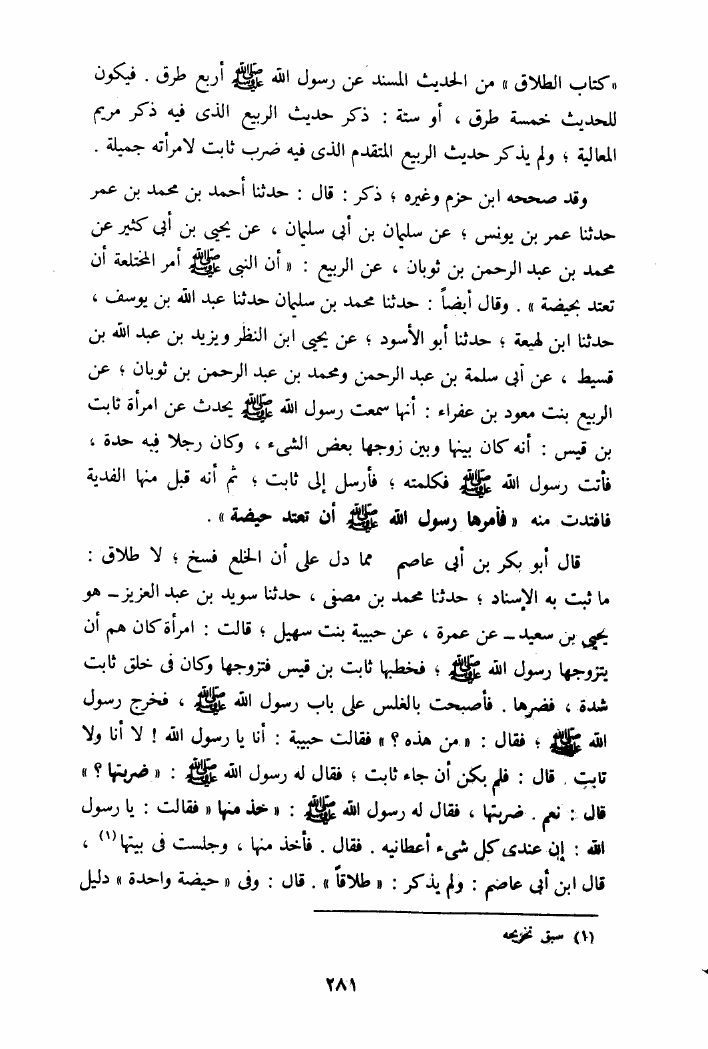 «كتاب الطلاق» من الحديث المسند عن رسول الله ﷺ أربع طرق . فيكون
للحديث خمسة طرق ، أو ستة : ذكر حديث الربيع الذى فيه ذكر مريم
المعالية ؛ ولم يذكر حديث الربيع المتقدم الذى فيه ضرب ثابت لامرأته جميلة .
وقد صححه ابن حزم وغيره ؛ ذكر : قال : حدثنا أحمد بن محمد بن عمر
حدثنا عمر بن يونس ؛ عن سليمان بن أبى سليمان ، عن يحيى بن أبى كثير عن
محمد بن عبد الرحمن بن ثوبان ، عن الربيع : « أن النبى ﷺ أمر المختلعة أن
تعتد بحيضة » . وقال أيضاً : حدثنا محمد بن سليمان حدثنا عبد الله بن يوسف ،
حدثنا ابن لهيعة ؛ حدثنا أبو الأسود ؛ عن يحيى ابن النظر ويزيد بن عبد الله بن
قسيط ، عن أبى سلمة بن عبد الرحمن ومحمد بن عبد الرحمن بن ثوبان ؛ عن
الربيع بنت معود بن عفراء : أنها سمعت رسول الله ﷺ يحدث عن امرأة ثابت
بن قيس : أنه كان بينها وبين زوجها بعض الشىء ، وكان رجلا فيه حدة ،
فأتت رسول الله ﷺ فكلمته ؛ فأرسل إلى ثابت ؛ ثم أنه قبل منها الفدية
فافتدت منه « فأمرها رسول الله ﷺ أن تعتد حيضة » .
قال أبو بكر بن أبى عاصم مما دل على أن الخلع فسخ ؛ لا طلاق :
ما ثبت به الإسناد ؛ حدثنا محمد بن مصفى ، حدثنا سويد بن عبد العزيز ــ هو
يحيى بن سعيد ــ عن عمرة ، عن حبيبة بنت سهيل ؛ قالت : امرأة كان هم أن
يتزوجها رسول الله ﷺ ؛ فخطبها ثابت بن قيس فتزوجها وكان فى خلق ثابت
شدة ، فضربها . فأصبحت بالغلس على باب رسول الله ﷺ ، فخرج رسول
الله ﷺ ؛ فقال : « من هذه ؟ » فقالت حبيبة : أنا يا رسول الله ! لا أنا ولا
ثابت . قال : فلم يكن أن جاء ثابت ؛ فقال له رسول الله ﷺ : « ضربتها ؟ »
قال : نعم . ضربتها ، فقال له رسول الله ﷺ : « خذ منها » فقالت : يا رسول
الله : إن عندى كل شىء أعطانيه . فقال . فأخذ منها ، وجلست فى بيتها (١) ،
قال ابن أبى عاصم : ولم يذكر : « طلاقاً » . قال : وفى « حيضة واحدة » دليل
(١) سبق تخريجه
٢٨١